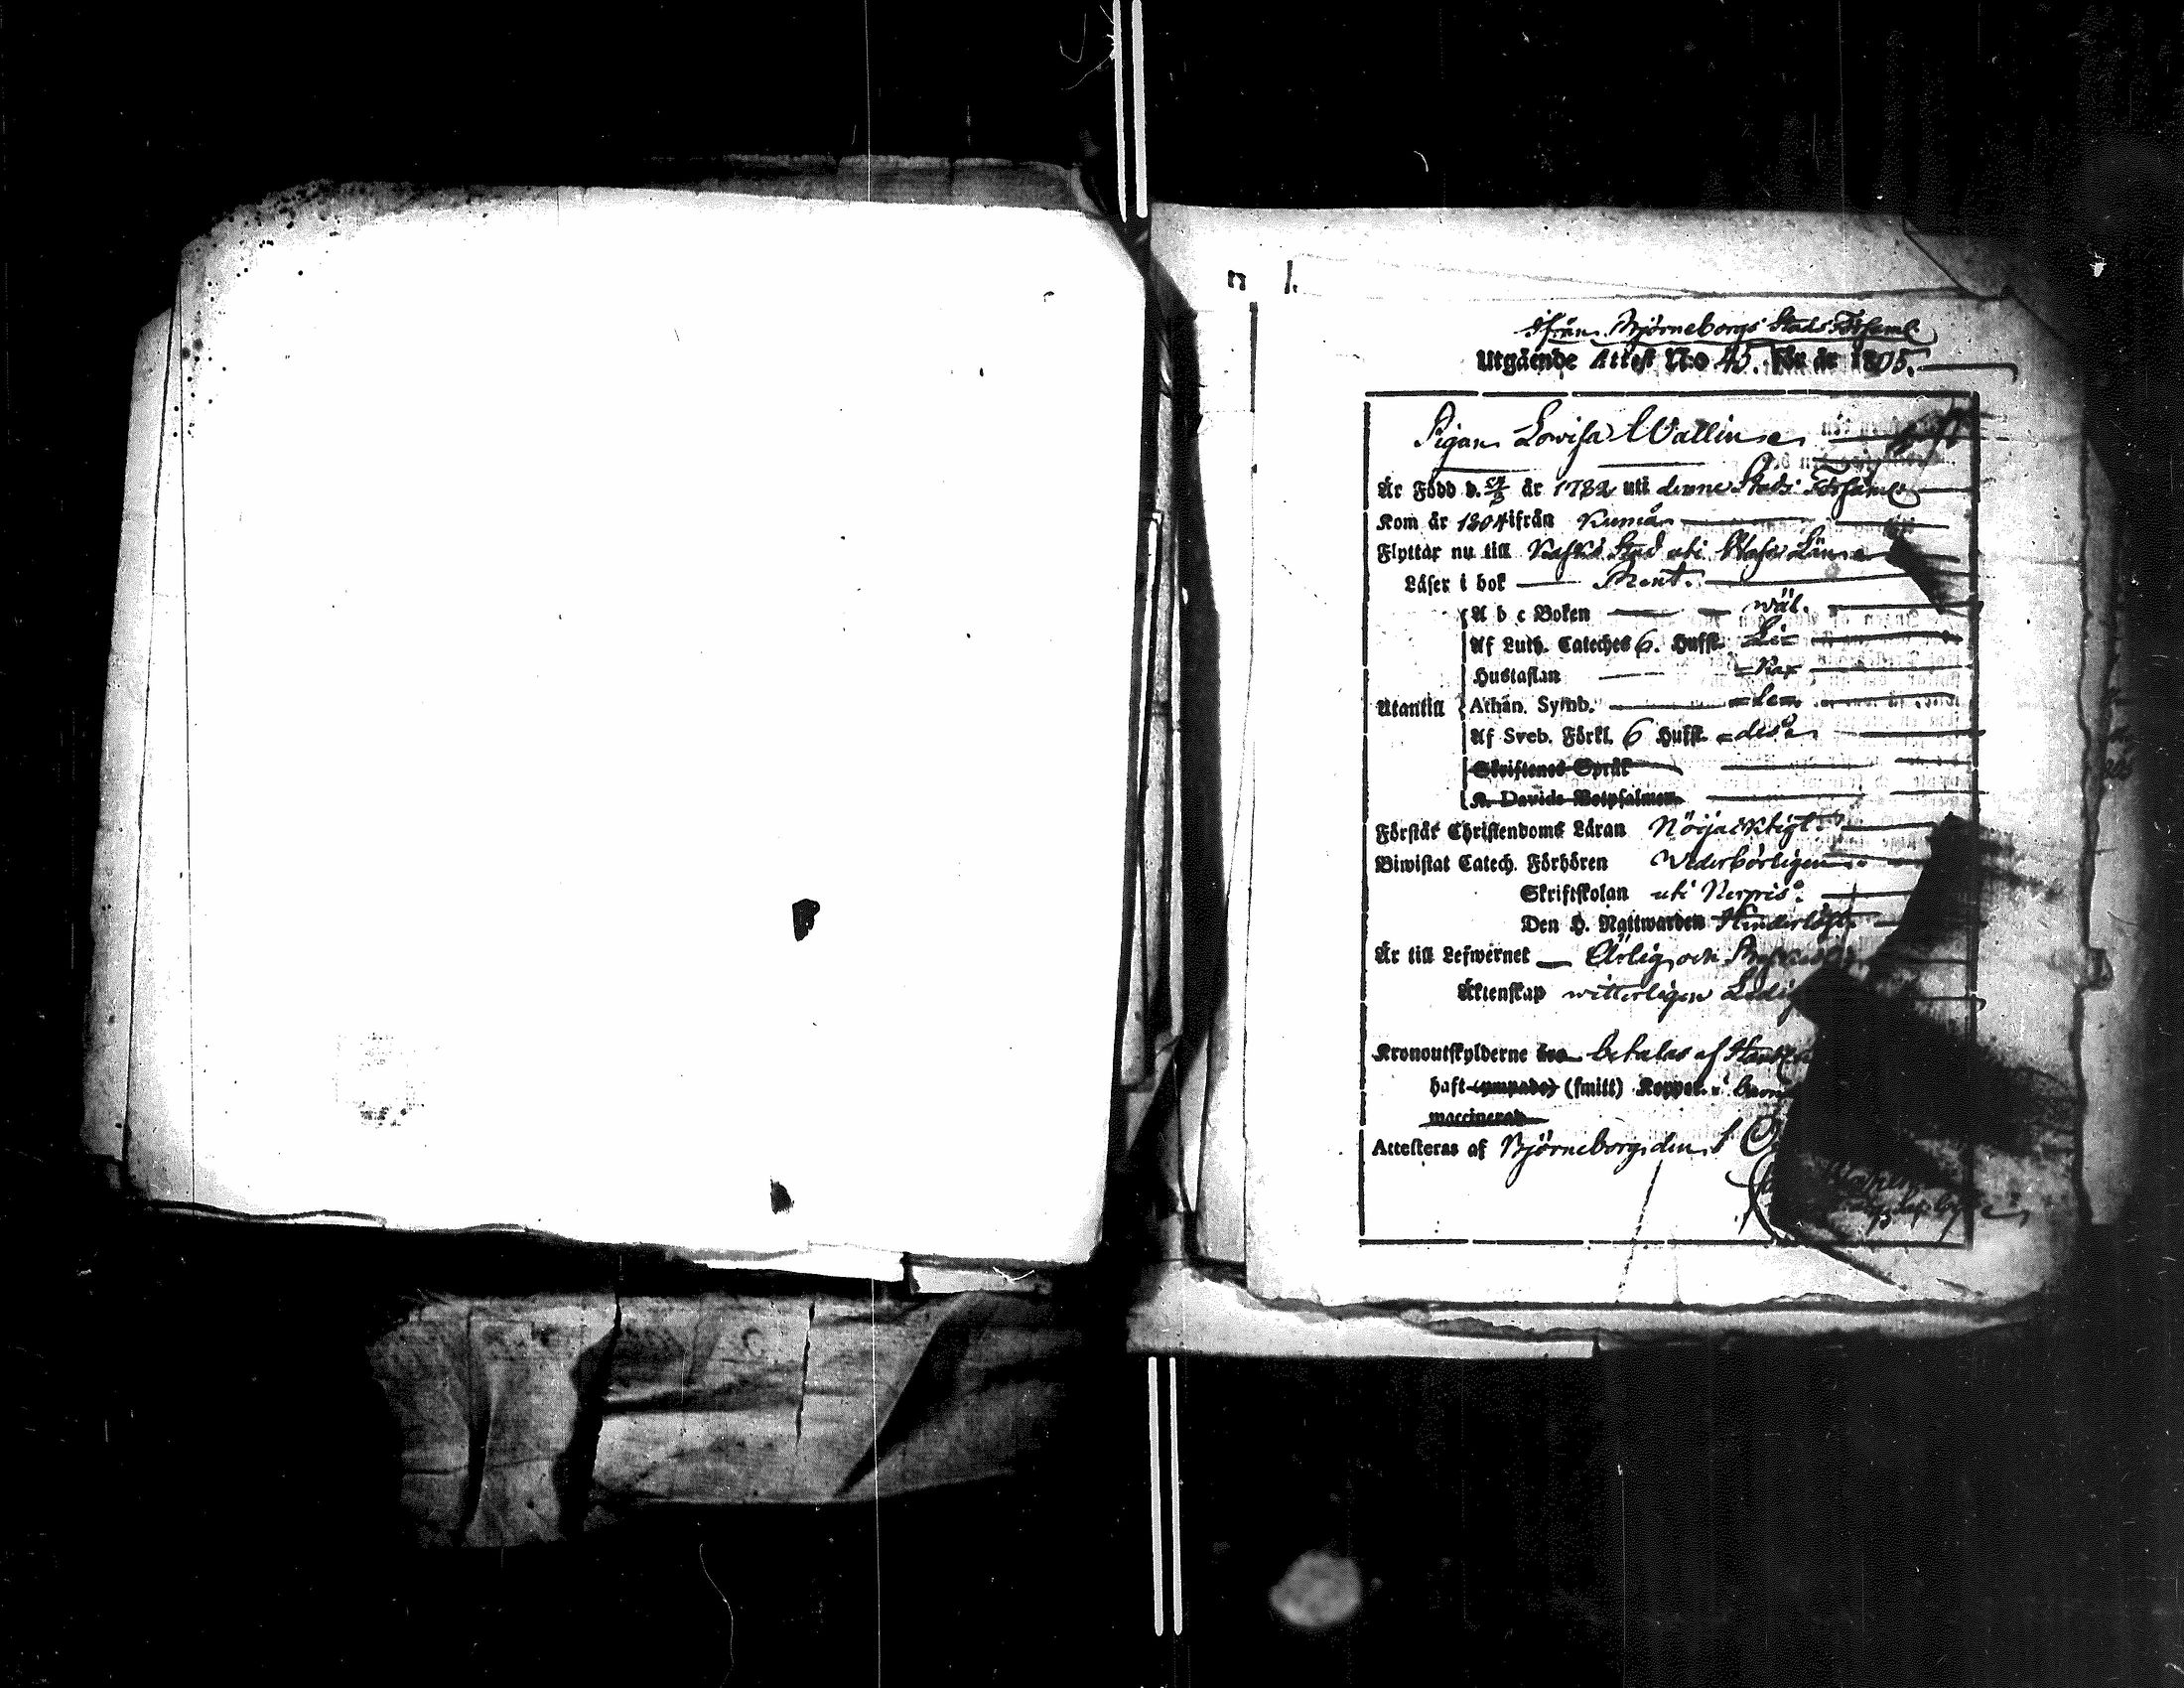 n 1.
ifrån Björneborgs Stads Församl.
Utgående Attest N:o 45. för år 1805.
Pigan Lovisa Wallin
Är Född d. år 1782 uti denne Stads Församl.
Kom år 1804 ifrån Kumå
Flyttar nu till Kaskö Stad uti Wasa Län
Läser i bok Rent.
A b c Boken wäl.
Af Luth. Cateches 6. Hufst. Li=
Hustaflan =ka
Utantill Athan. Symb. =le=
Af Sveb. Förkl. 6 Hufst. =des
Skriftenes Språk
K. Davids Botpsalmer
Förstår Christendoms Läran Nöijacktigt.
Biwistat Catech. Förhören Wederbörligen
Skriftskolan uti Nerpis.
Den H. Nattwarden Hinderlöst.
Är till Lefwernet Ärlig och
Äktenskap witterligen Ledig
Kronoutskylderne betalas af
haft (ympade) (smitt) Koppor i
vaccinerad
Attesteras af Björneborg den